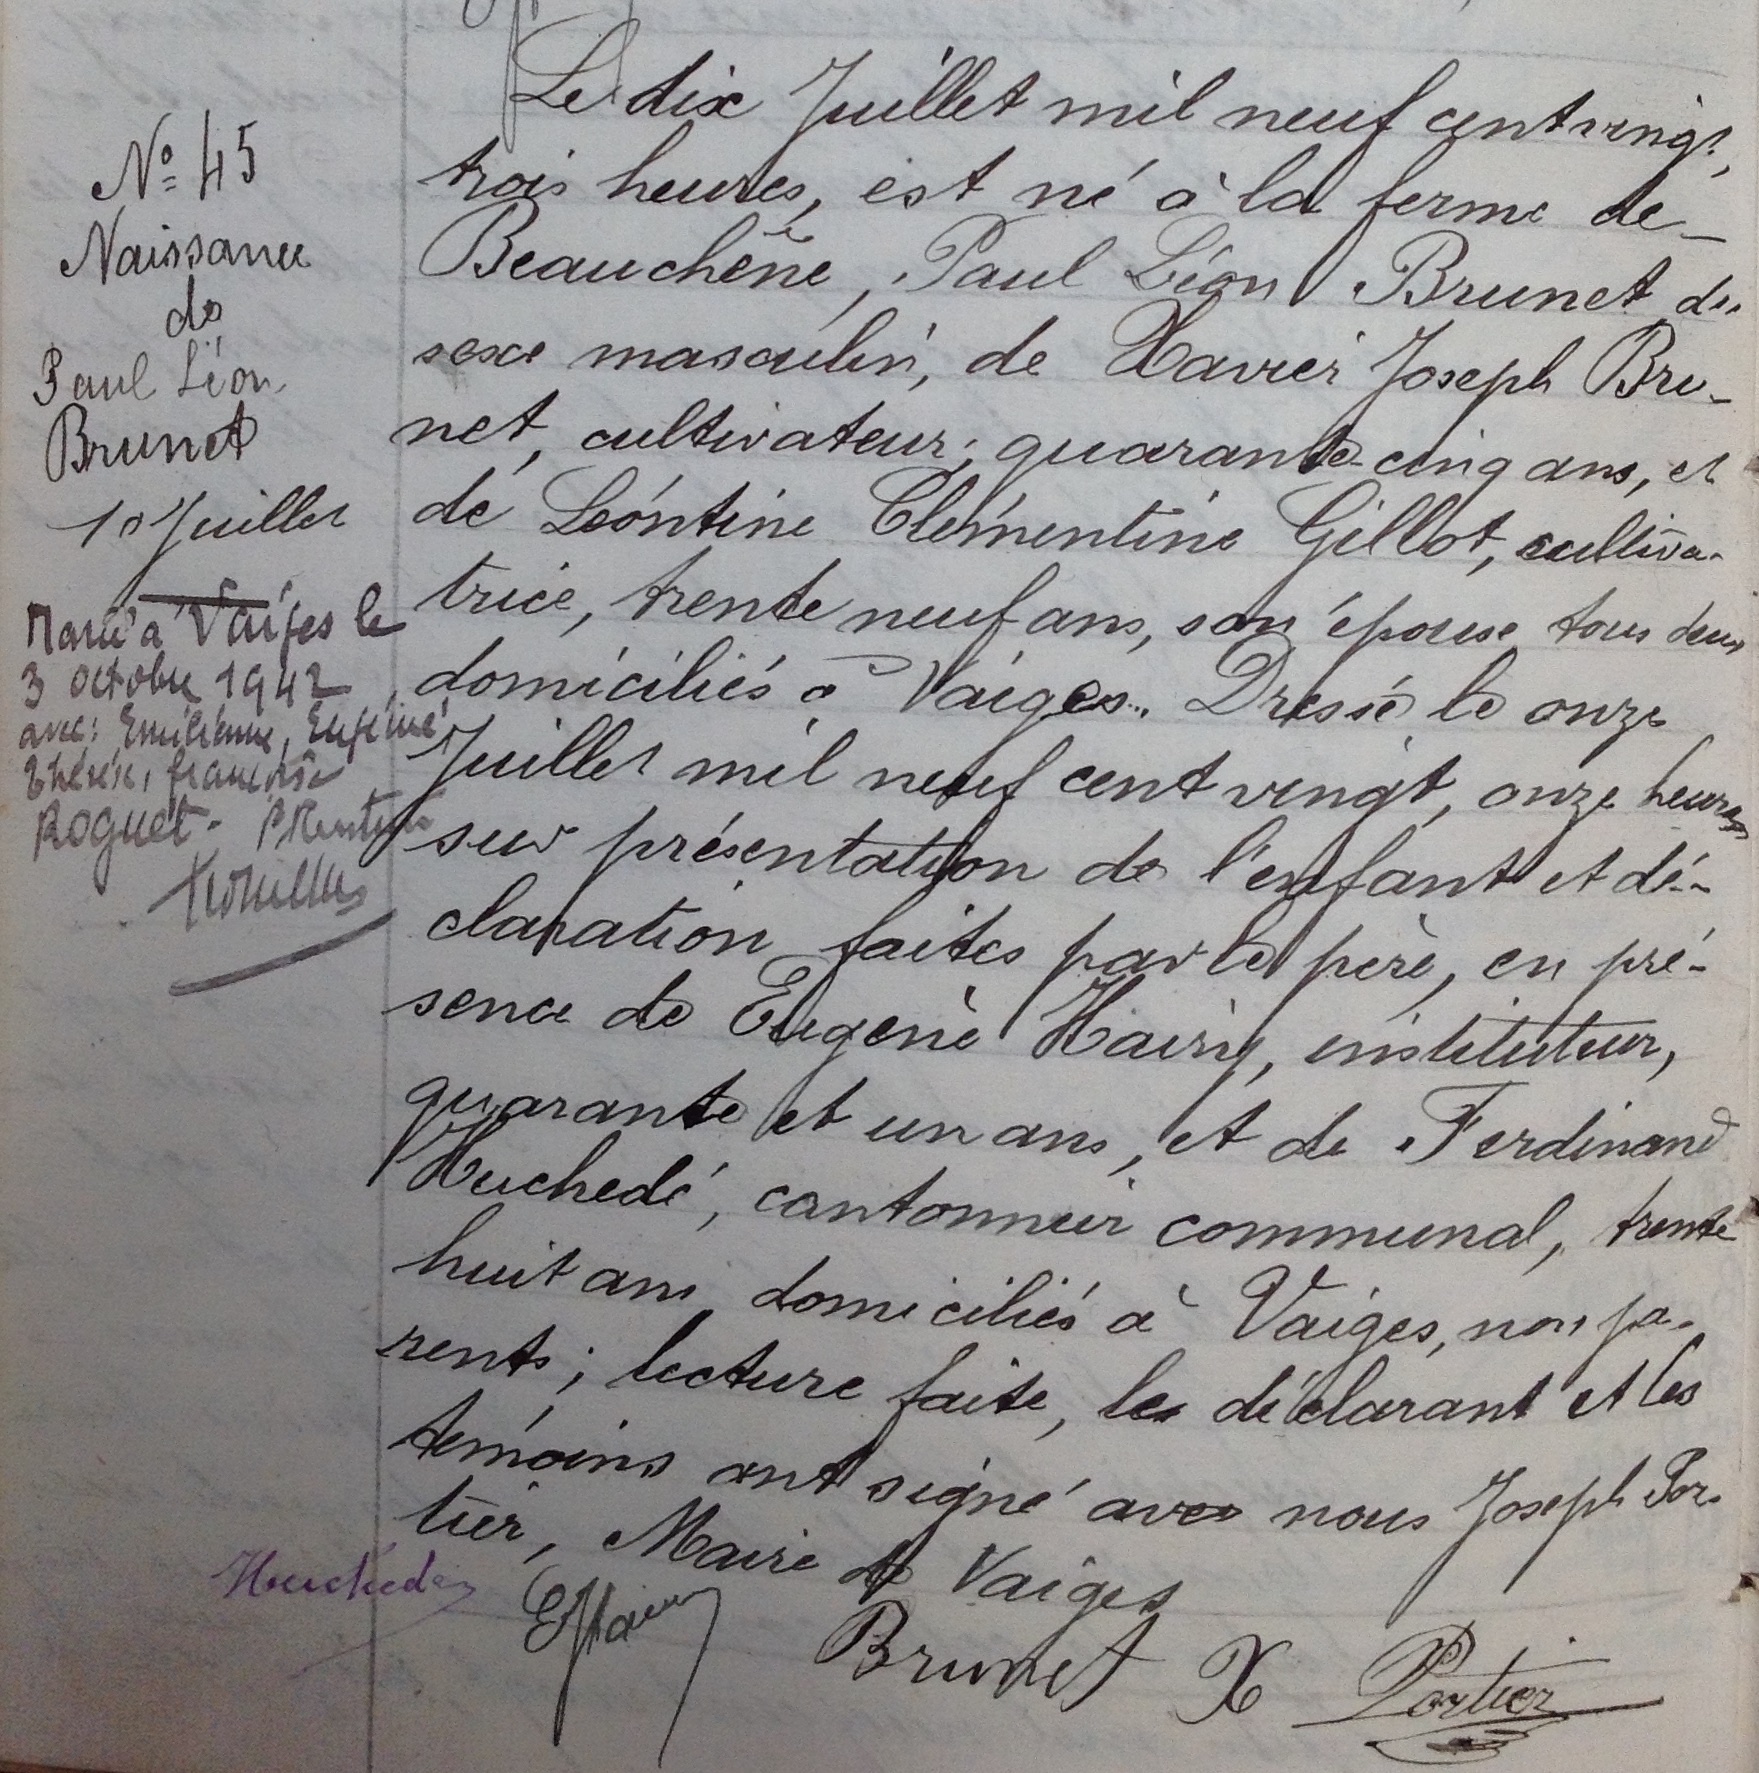 N° 45
Naissance
de
Paul Léon
Brunet
10 Juillet
Marié à Vaiges le
3 octobre 1942
avec: Emilienne, Eugénie
Thérèse, françoise
Roguet.
Le dix Juillet mil neuf cent vingt,
trois heures, est né à la ferme de
Beauchêne, Paul Léon Brunet du
sexe masculin, de Xavier Joseph Bru-
net, cultivateur, quarante-cinq ans, et
de Léontine Clémentine Gillot, cultiva-
trice, trente neuf ans, son épouse tous deux
domiciliés à Vaiges. Dressé le onze
Juillet mil neuf cent vingt, onze heures
sur présentation de l'enfant et dé-
claration faites par le père, en pré-
sence de Eugène Hairy, instituteur,
quarante et un ans, et de Ferdinand
Huchedé, cantonnier communal, trente
huit ans domiciliés à Vaiges, non pa-
rents; lecture faite, le déclarant et les
témoins ont signé avec nous Joseph Por-
tier, Maire de Vaiges
Huchedé
EHairy
Brunet X Portier